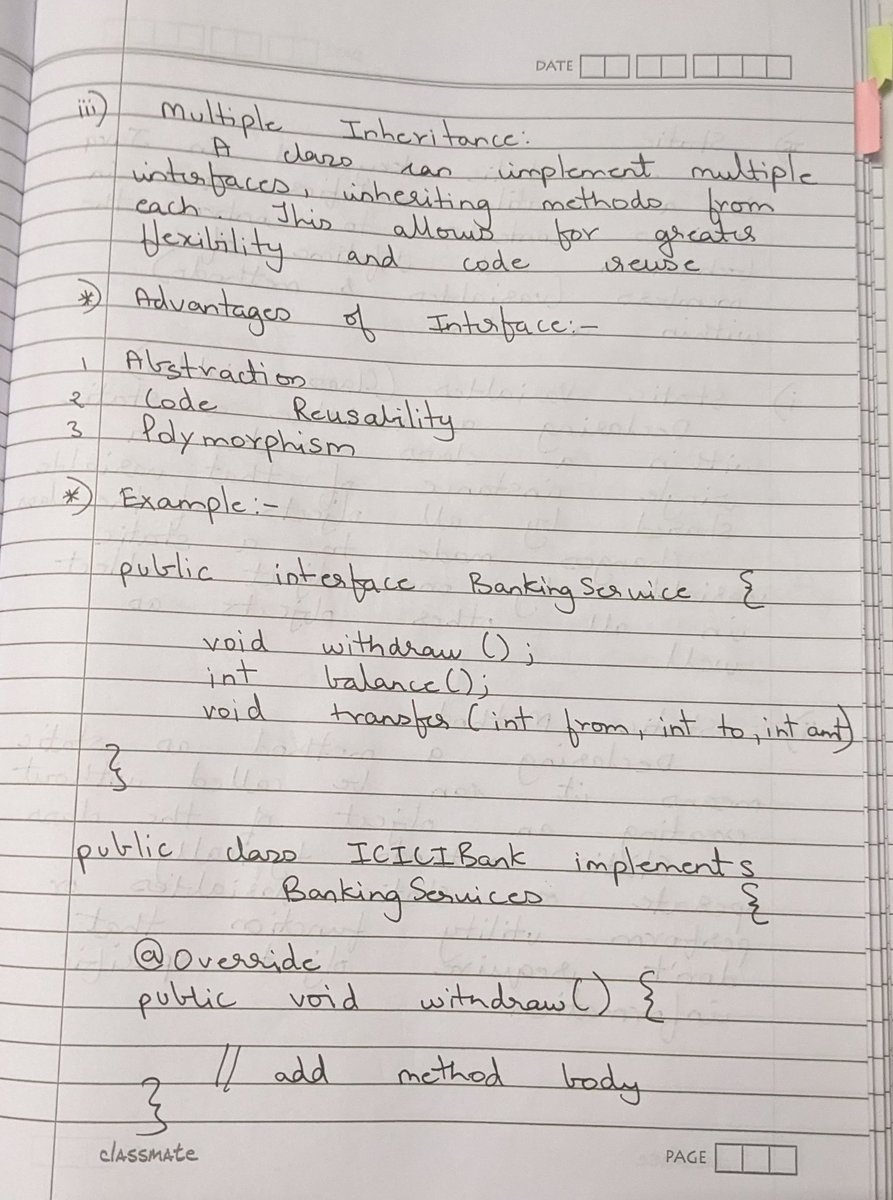 DATE
iii) Multiple Inheritance:
A class can implement multiple
interfaces, inheriting methods from
each. This allows for greater
flexibility and code reuse
*) Advantages of Interface:-
1 Abstraction
2 Code Reusability
3 Polymorphism
*) Example:-
public interface BankingService {
void withdraw ();
int balance();
void transfer (int from, int to, int amt)
}
public class ICICIBank implements
BankingServices {
@Override
public void withdraw() {
// add method body
}
classmate
PAGE